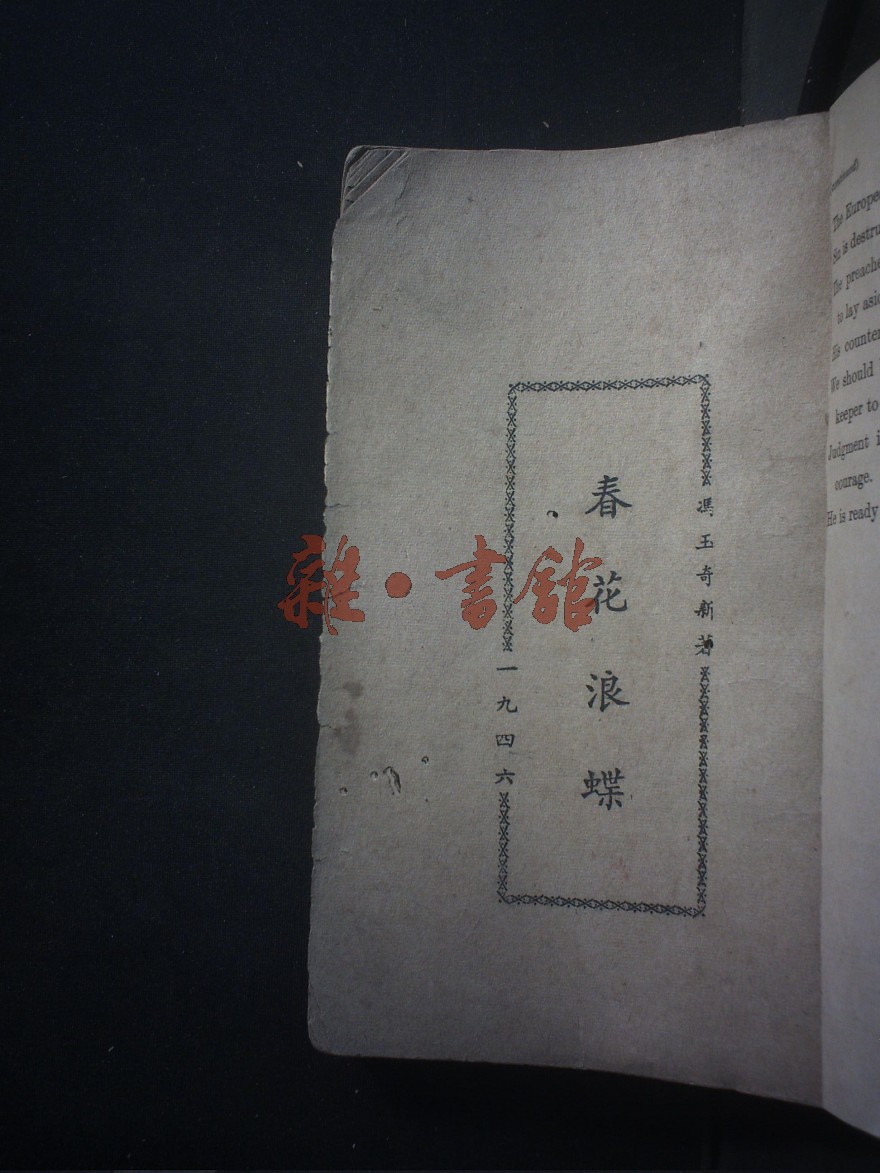 馮玉奇新著
春花浪蝶
一九四六
雜·書舘
continued)
The Europe
Sin is destru
The preache
to lay asid
His counter
We should
keeper to
Judgment i
courage.
He is ready